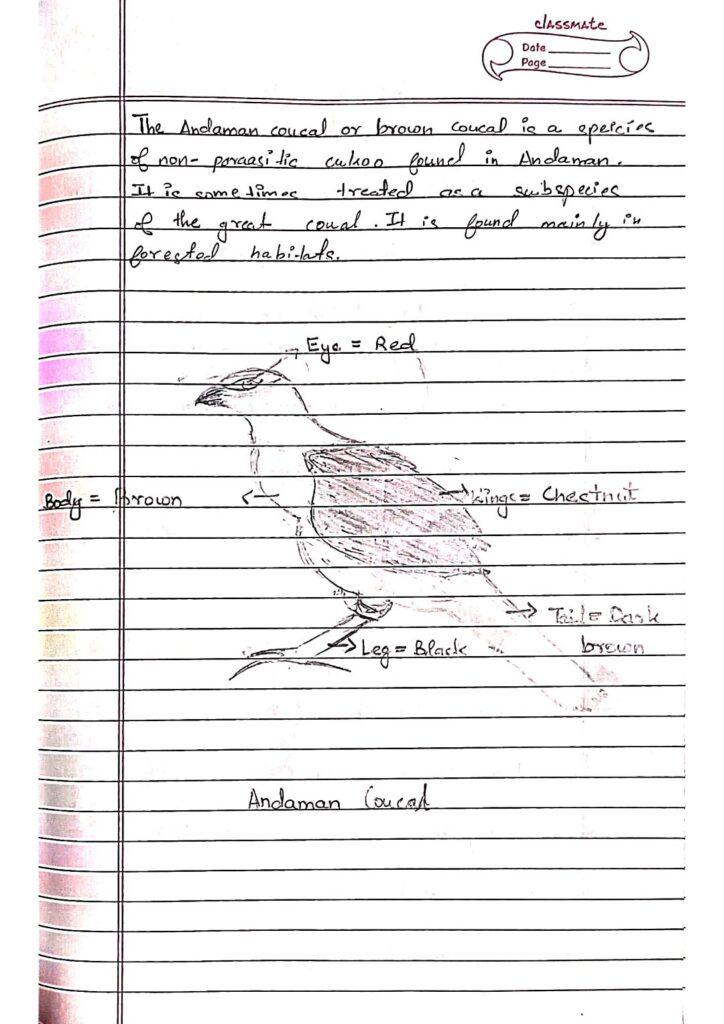 classmate
Date
Page
The Andaman coucal or brown coucal is a speicies
of non-paraasitic cukoo found in Andaman.
It is sometimes treated as a subspecies
of the great coual. It is found mainly in
forested habitats.
Eye = Red
Body = Brown
Wings = Chestnut
Tail = Dark
brown
Leg = Black
Andaman Coucal